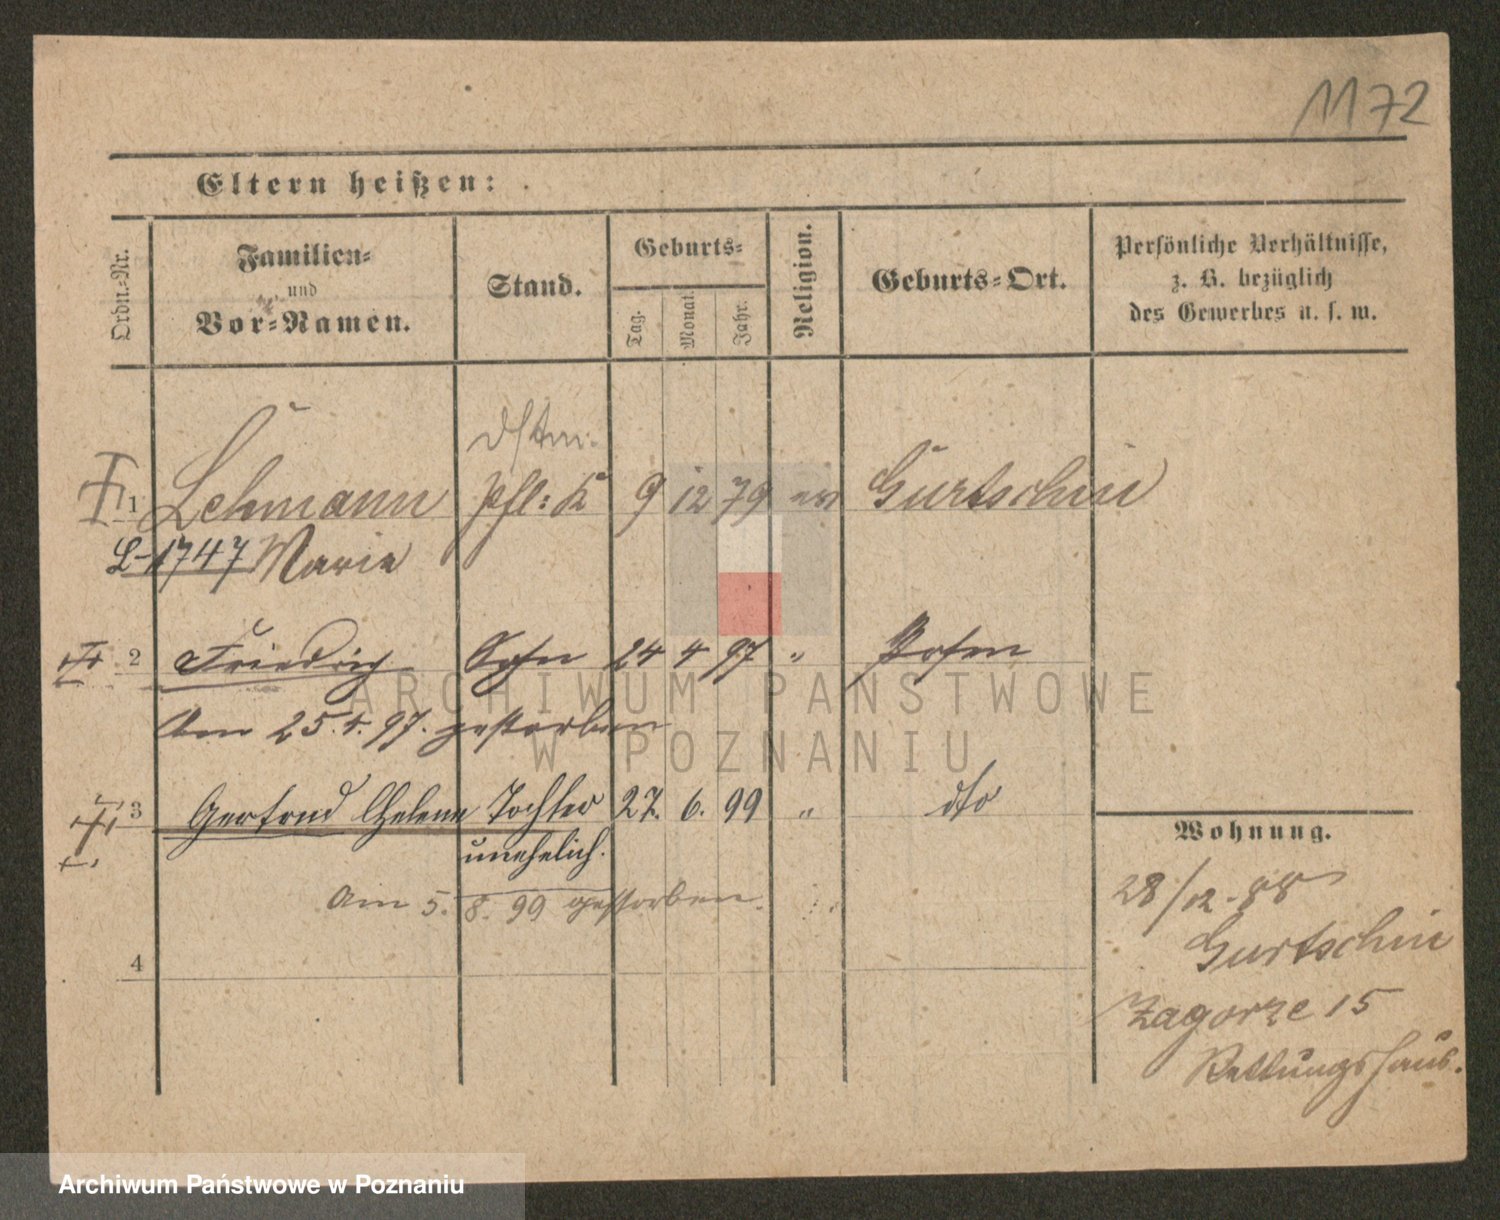 1172
Eltern heißen:
Ordn.-Nr.
Familien-
und
Vor-Namen.
Stand.
Geburts-
Tag.
Monat.
Jahr.
Religion.
Geburts-Ort.
Persönliche Verhältnisse,
z. B. bezüglich
des Gewerbes u. s. w.
1 Lehmann Pfl: K 9 12 79 ev Gurtschin
L-1747 Marie
2 Friedrich Sohn 24 4 97 " Posen
Am 25.4.97. gestorben
3 Gertrud Helene Tochter 27. 6. 99 " dto
unehelich.
Am 5. 8. 99 gestorben.
4
Wohnung.
28/12-88
Gurtschin
Zagorze 15
Rettungshaus.
ARCHIWUM PAŃSTWOWE
W POZNANIU
Archiwum Państwowe w Poznaniu